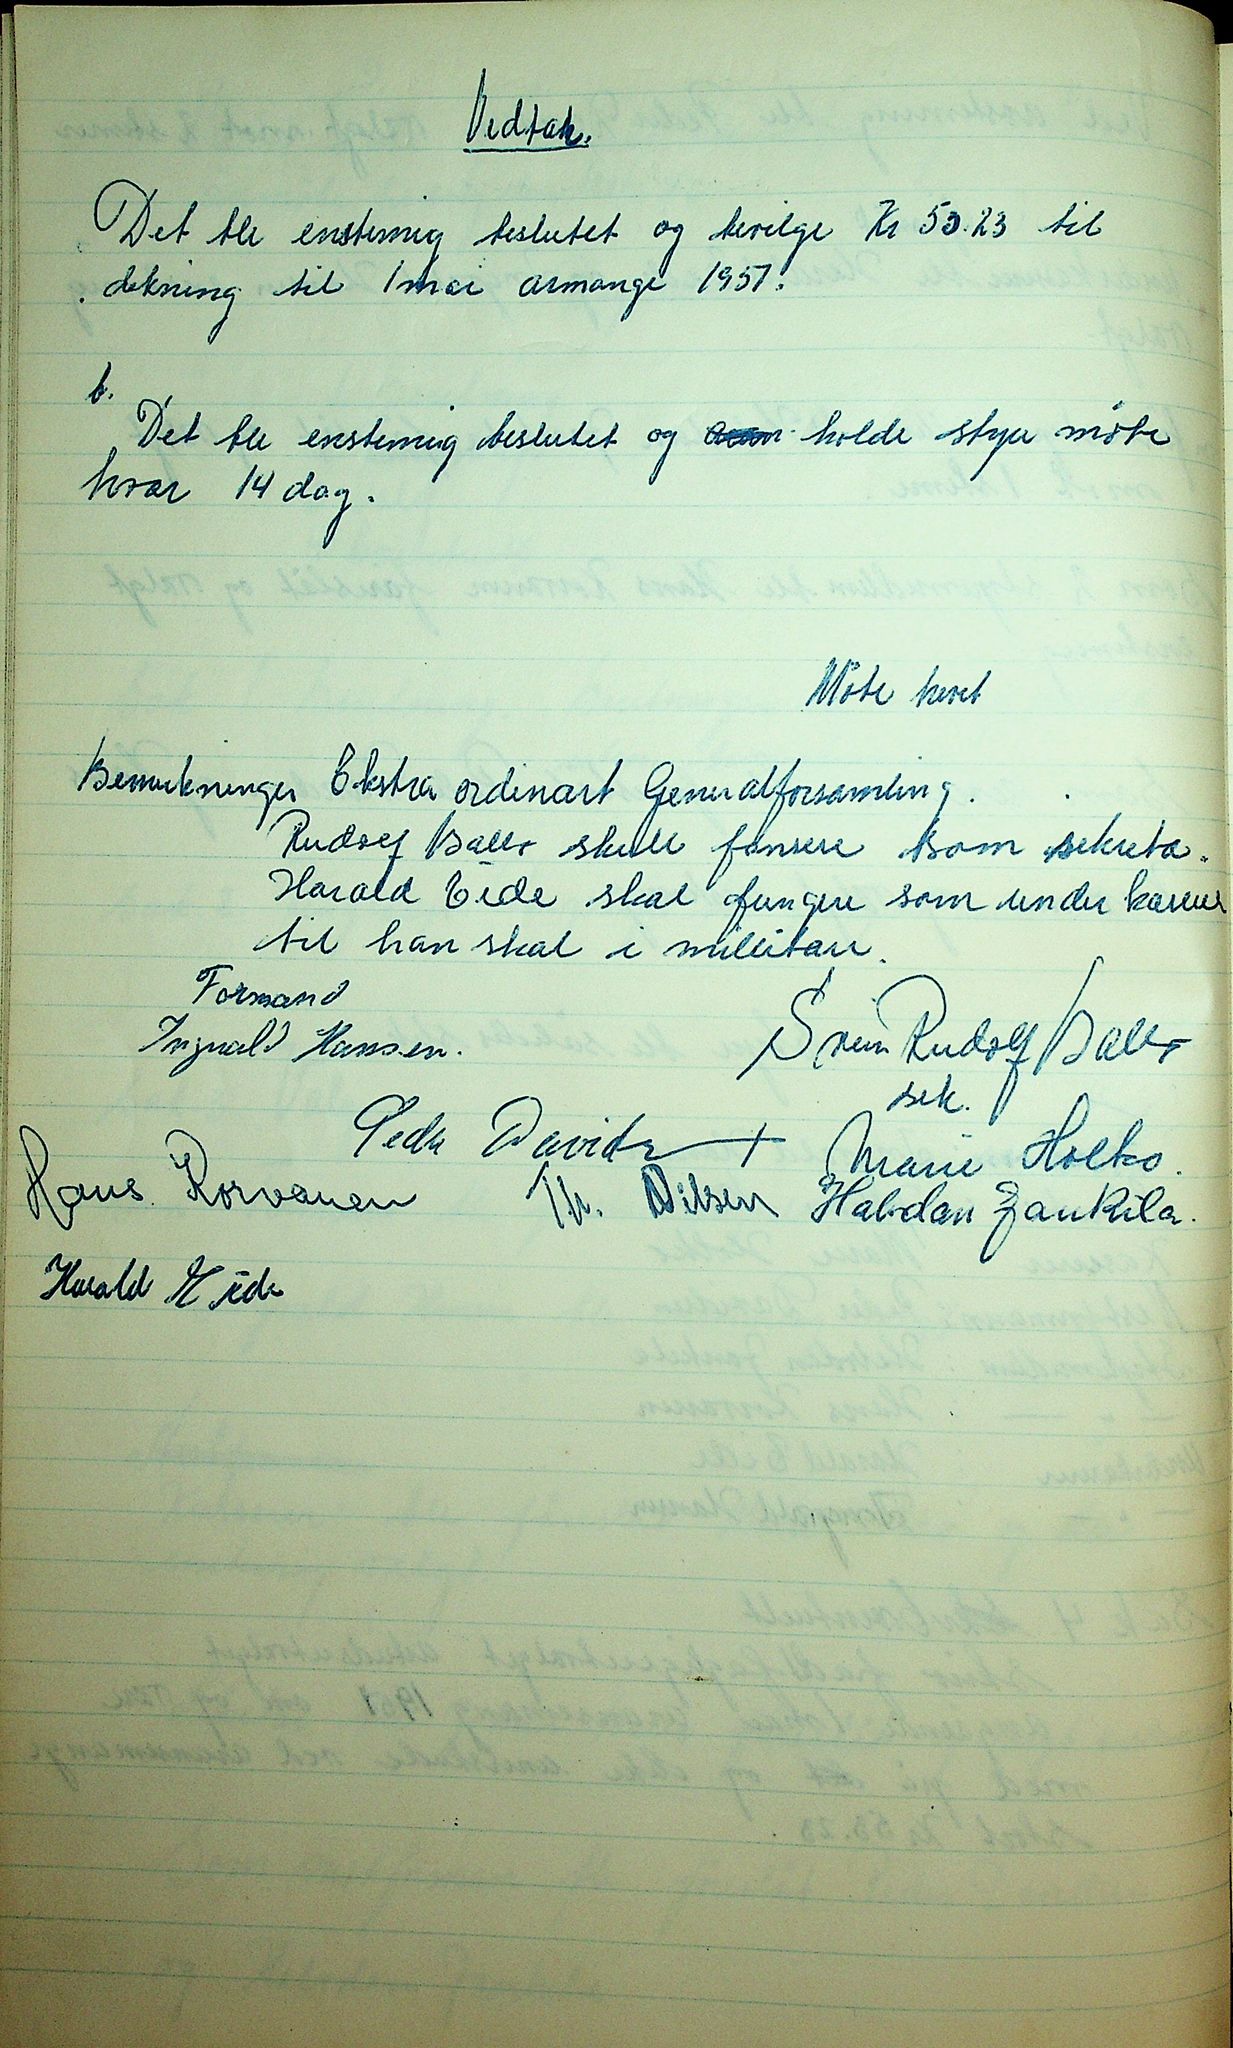 Vedtak.
Det ble enstemig beslutet og bevilge Kr 53.23 til
dekning til 1 mai armange 1951.
b.
Det ble enstemig beslutet og holde styre möte
hvær 14 dag.
Möte hevet
Bemerkninger Ekstra ordinært Generalforsamling.
Rudolf Ballo skulle som sekretæ.
Harald Eide skal fungere som under kaserer
til han skal i millitære.
Formand
Ingvald Hansen.
Svein Rudolf Ballo
sek.
Peder Davidsen
Marie Holko.
Hans Korvanen
Th. Nilsen
Halvdan Zankila.
Harald Eide